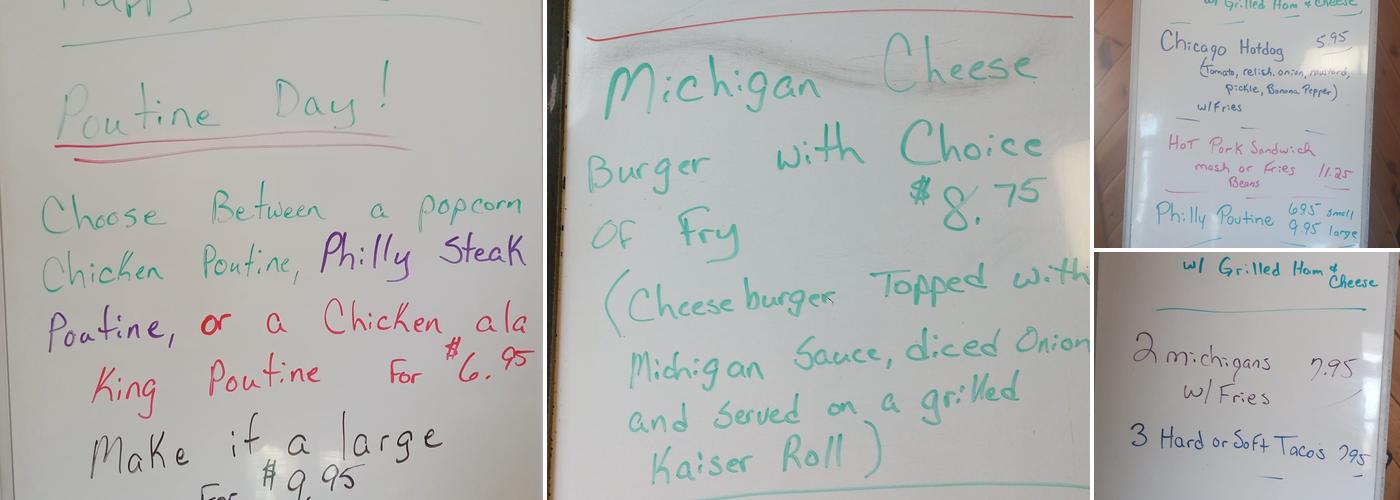 Happy
Poutine Day!
Choose Between a popcorn
Chicken Poutine, Philly Steak
Poutine, or a Chicken ala
King Poutine For $6.95
Make it a large
For $9.95
Michigan Cheese
Burger with Choice
of Fry $8.75
(Cheeseburger Topped with
Michigan Sauce, diced Onion
and Served on a grilled
Kaiser Roll)
w/ Grilled Ham & Cheese
Chicago Hotdog 5.95
(Tomato, relish, onion, mustard,
pickle, Banana Pepper)
w/Fries
Hot Pork Sandwich
mash or Fries 11.25
Beans
Philly Poutine 6.95 small
9.95 large
w/ Grilled Ham &
Cheese
2 michigans 7.95
w/ Fries
3 Hard or Soft Tacos 7.95